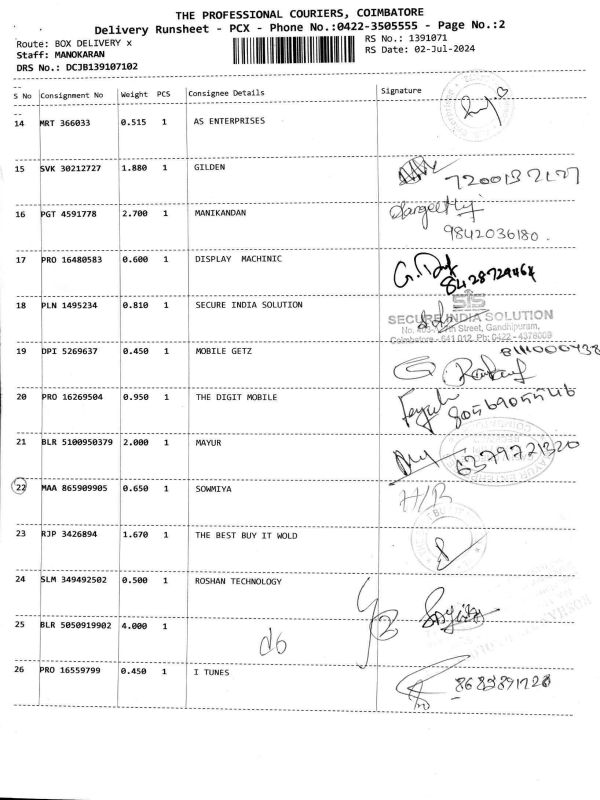 THE PROFESSIONAL COURIERS, COIMBATORE
Delivery Runsheet - PCX - Phone No.:0422-3505555 - Page No.:2
Route: BOX DELIVERY x RS No.: 1391071
Staff: MANOKARAN RS Date: 02-Jul-2024
DRS No.: DCJB139107102
S No Consignment No Weight PCS Consignee Details Signature
14 MRT 366033 0.515 1 AS ENTERPRISES
15 SVK 30212727 1.880 1 GILDEN
16 PGT 4591778 2.700 1 MANIKANDAN
9842036180.
17 PRO 16480583 0.600 1 DISPLAY MACHINIC
8428729464
18 PLN 1495234 0.810 1 SECURE INDIA SOLUTION
SIS
SECURE INDIA SOLUTION
Street, Gandhipuram,
Coimbatore - 641 012. Ph: 0422 - 4376009
19 DPI 5269637 0.450 1 MOBILE GETZ
20 PRO 16269504 0.950 1 THE DIGIT MOBILE
21 BLR 5100950379 2.000 1 MAYUR
6379721320
22 MAA 865909905 0.650 1 SOWMIYA
H/B
23 RJP 3426894 1.670 1 THE BEST BUY IT WOLD
24 SLM 349492502 0.500 1 ROSHAN TECHNOLOGY
2
25 BLR 5050919902 4.000 1
26 PRO 16559799 0.450 1 I TUNES